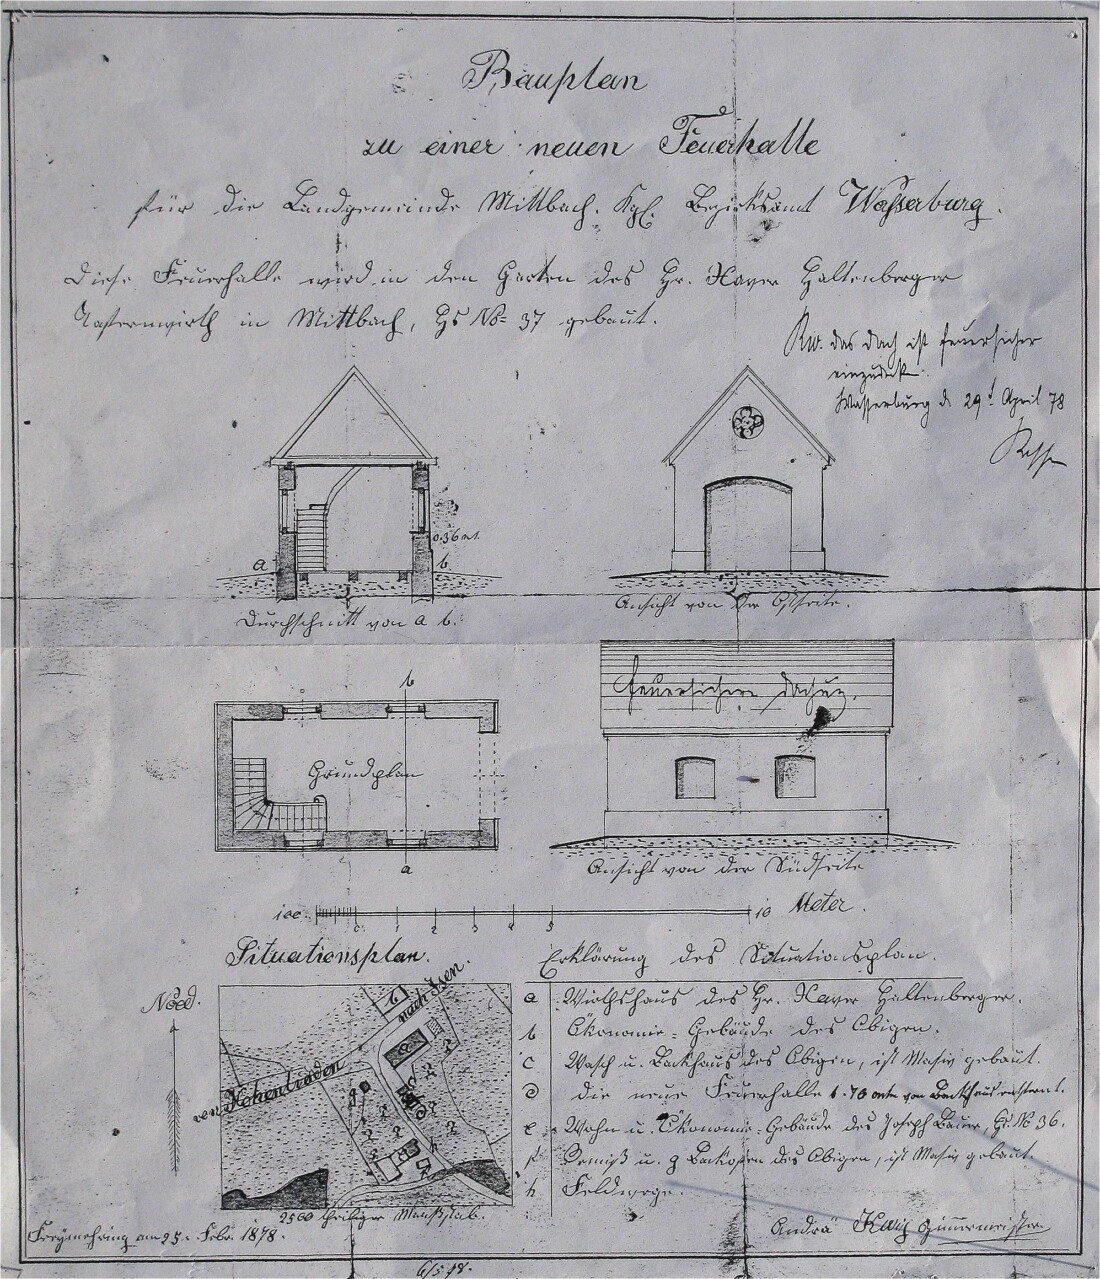 Bauplan
zu einer neuen Feuerhalle
für die Landgemeinde Mittbach. Kgl. Bezirksamt Wasserburg.
Diese Feuerhalle wird in den Garten des Hr. Xaver Haltenberger
Tafernwirth in Mittbach, Hs No= 37 gebaut.
das Dach ist feuersicher
Wasserburg d. 29t April 78
0.36 m.
a
b
Durchschnitt von a b.
Ansicht von der Ostseite.
b
Grundplan
a
feuersichere Dachung.
Ansicht von der Südseite
100
0 1 2 3 4 5
10 Meter.
Situationsplan.
Nord.
nach Isen.
von Hohenlinden
2500 theiliger Maaßstab.
Erklärung des Situationsplan.
a Wirthshaus des Hr. Xaver Haltenberger.
b Ökonomie-Gebäude des Obigen.
c Wasch u. Backhaus des Obigen, ist Masiv gebaut.
d die neue Feuerhalle 1.70 mtr von Backhaus entfernt.
e Wohn u. Ökonomie-Gebäude des Joseph Bauer, Hs No 36.
f Remiß u. g Backofen des Obigen, ist Masiv gebaut
h Feldwege.
am 25. Febr. 1878.
Andrä Zimmermeister
6/5 78.